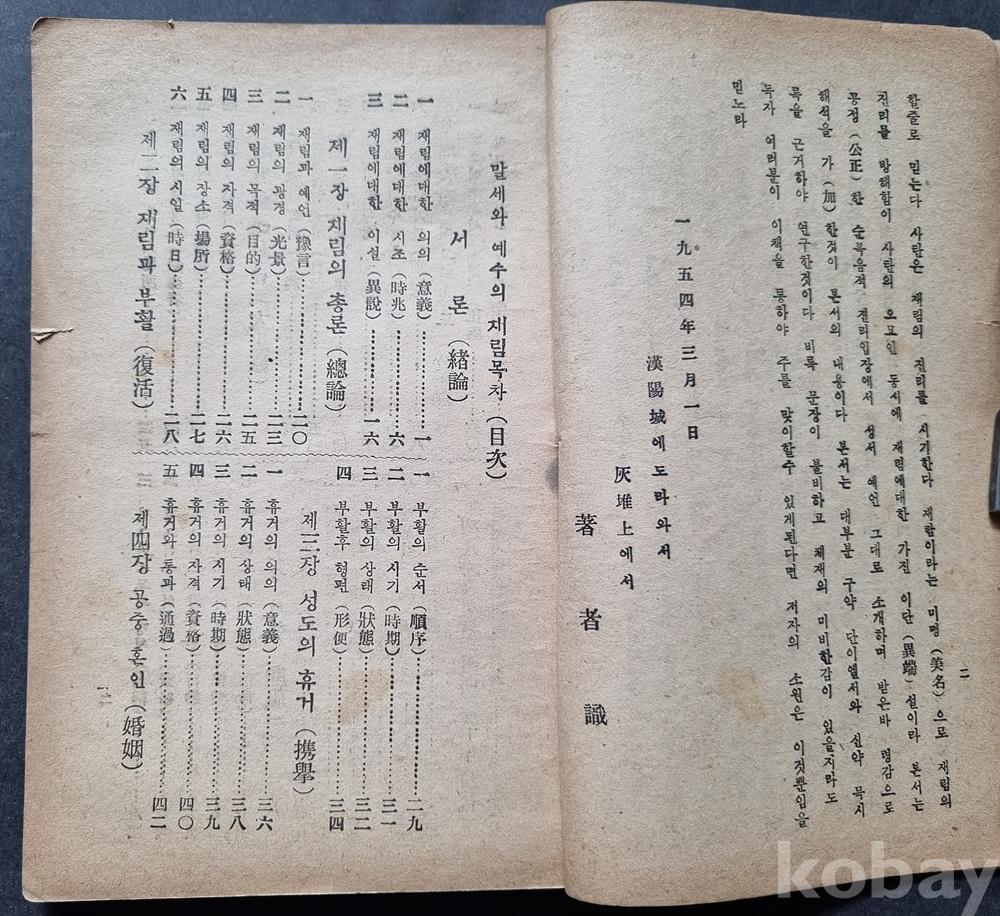 二
할줄로 믿는다 사탄은 재림의 진리를 시기한다 재림이라는 미명(美名)으로 재림의
진리를 방해함이 사탄의 오묘인 동시에 재림에대한 가진 이단(異端)설이라 본서는
공정(公正)한 순복음적 진리입장에서 성서 예언 그대로 소개하며 받은바 령감으로
해석을 가(加)한것이 본서의 내용이다 본서는 대부분 구약 단이엘서와 신약 묵시
록을 근거하야 연구한것이다 비록 문장이 불비하고 체재의 미비한감이 있을지라도
독자 여러분이 이책을 통하야 주를 맞이할수 있게된다면 저자의 소원은 이것뿐임을
믿노라
一九五四年三月一日
漢陽城에도라와서
灰堆上에서
著者識
말세와 예수의 재림목차(目次)
서론(緖論)
一 재림에대한 의의(意義)………一
二 재림에대한 시조(時兆)………六
三 재림에대한 이설(異說)………一六
제一장 재림의 총론(總論)
一 재림과 예언(豫言)………二〇
二 재림의 광경(光景)………二三
三 재림의 목적(目的)………二五
四 재림의 자격(資格)………二六
五 재림의 장소(場所)………二七
六 재림의 시일(時日)………二八
제二장 재림과 부활(復活)
一 부활의 순서(順序)………二九
二 부활의 시기(時期)………三一
三 부활의 상태(狀態)………三二
四 부활후 형편(形便)………三四
제三장 성도의 휴거(携擧)
一 휴거의 의의(意義)………三六
二 휴거의 상태(狀態)………三八
三 휴거의 시기(時期)………三九
四 휴거의 자격(資格)………四〇
五 휴거와 통과(通過)………四二
제四장 공중혼인(婚姻)
kobay